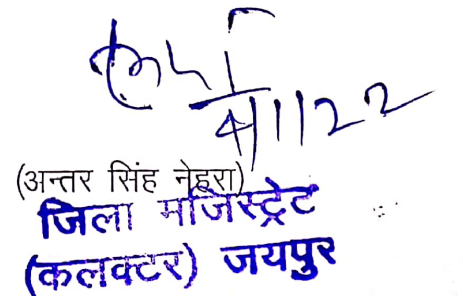 4/1/22
(अन्तर सिंह नेहरा)
जिला मजिस्ट्रेट
(कलक्टर) जयपुर